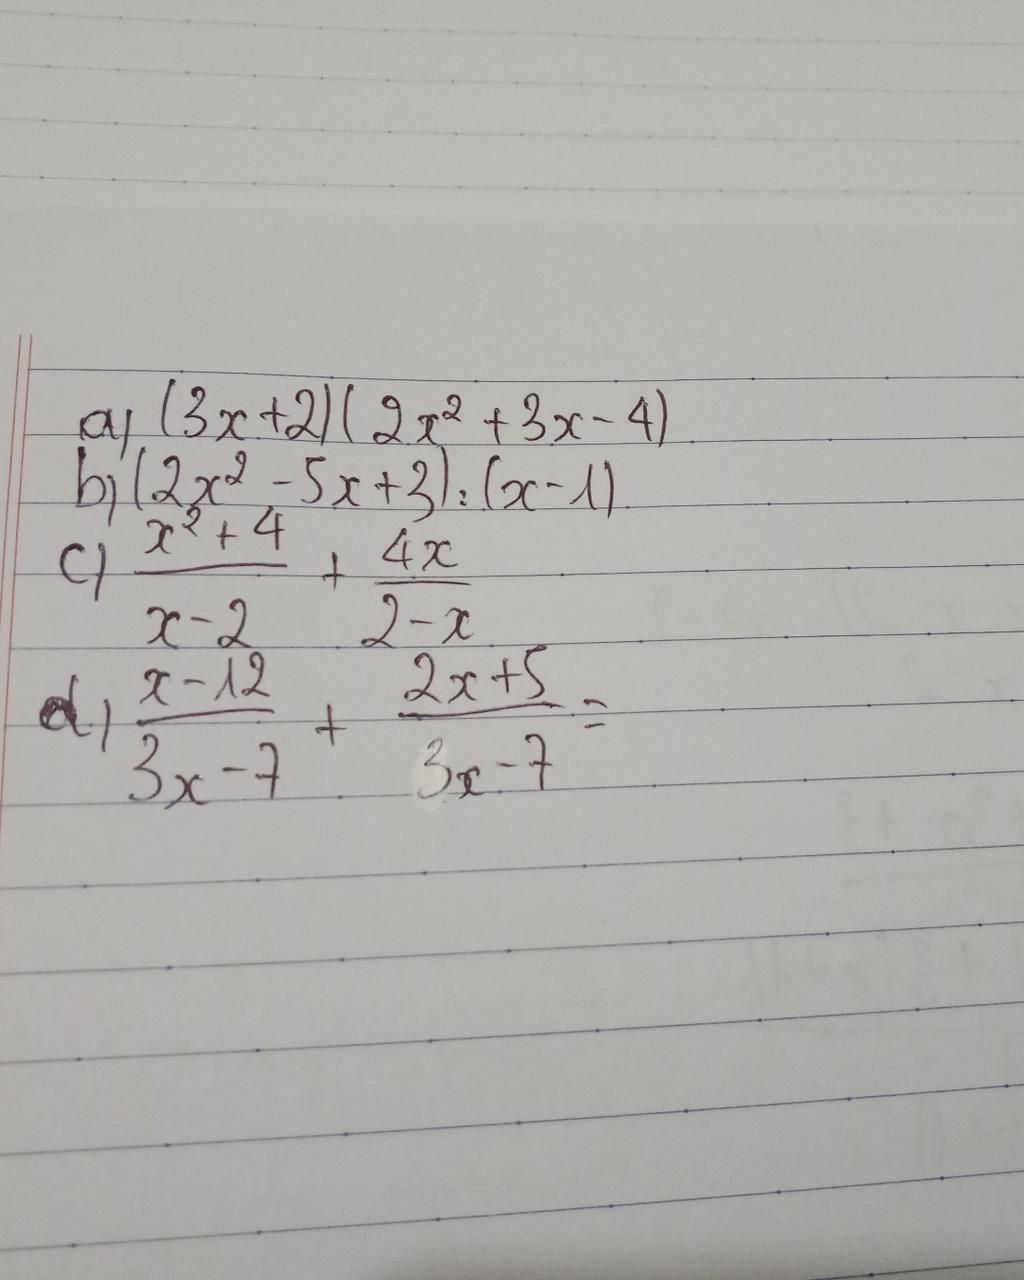 a) (3x+2)(2x² + 3x - 4)
b) (2x² - 5x + 3) : (x - 1)
c) (x² + 4)/(x - 2) + 4x/(2 - x)
d) (x - 12)/(3x - 7) + (2x + 5)/(3x - 7) =